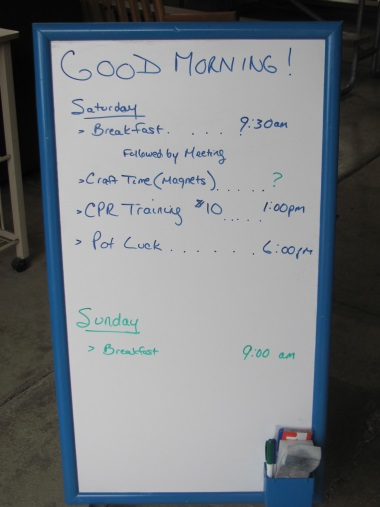 GOOD MORNING!
Saturday
> Breakfast . . . . . 9:30am
Followed by Meeting
> Craft Time (Magnets) . . . . . ?
> CPR Training $10 . . . . . 1:00pm
> Pot Luck . . . . . . . 6:00pm
Sunday
> Breakfast 9:00 am